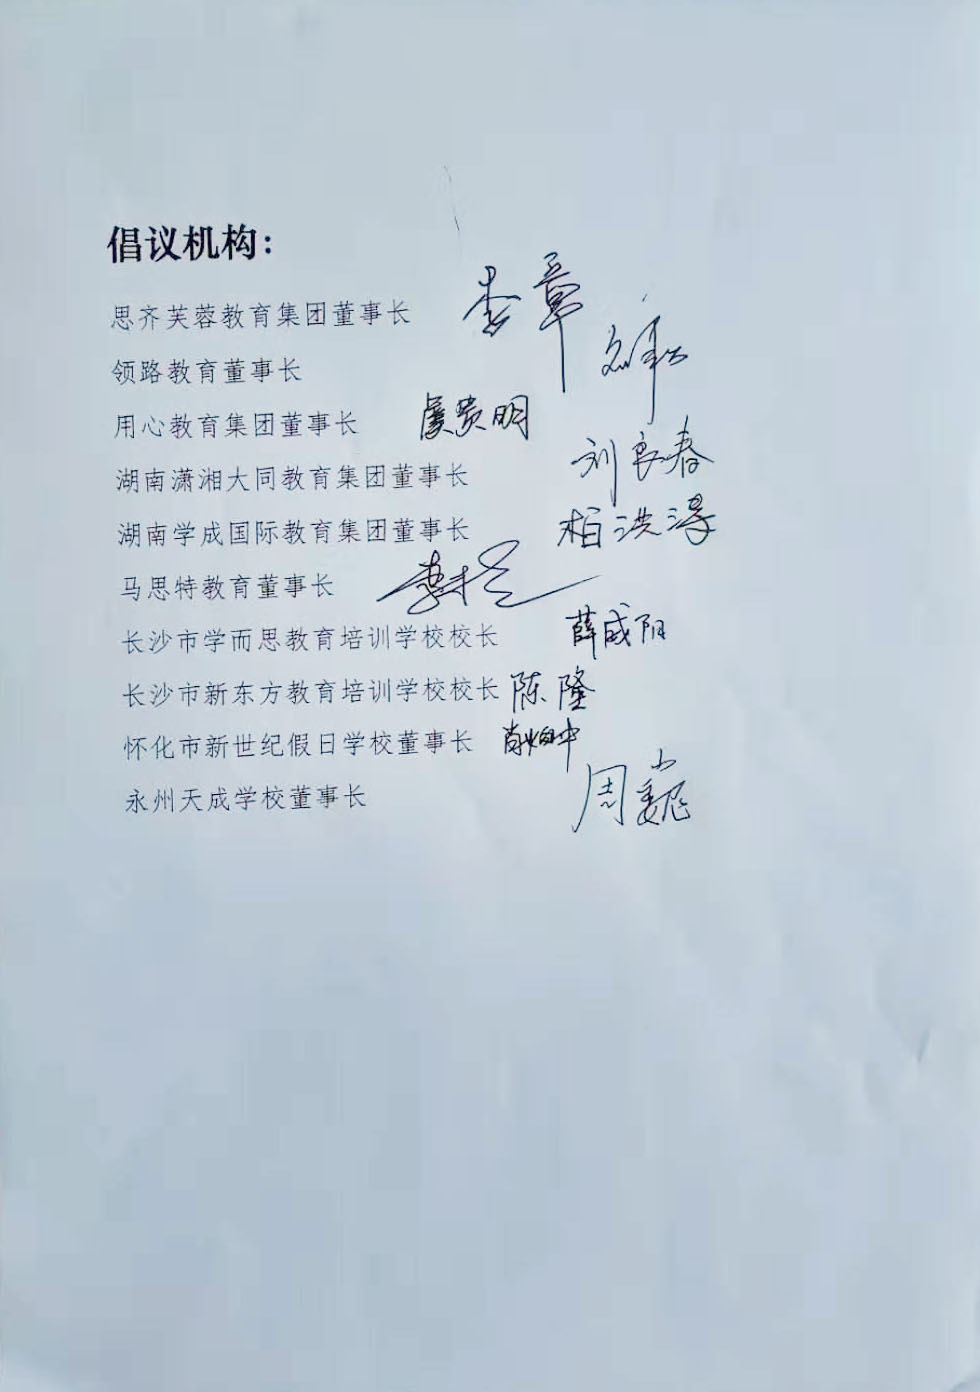 倡议机构：
思齐芙蓉教育集团董事长 李章
领路教育董事长
用心教育集团董事长 虞贵明
湖南潇湘大同教育集团董事长 刘良春
湖南学成国际教育集团董事长 柏洪
马思特教育董事长
长沙市学而思教育培训学校校长 薛成阳
长沙市新东方教育培训学校校长 陈隆
怀化市新世纪假日学校董事长 肖
永州天成学校董事长 周